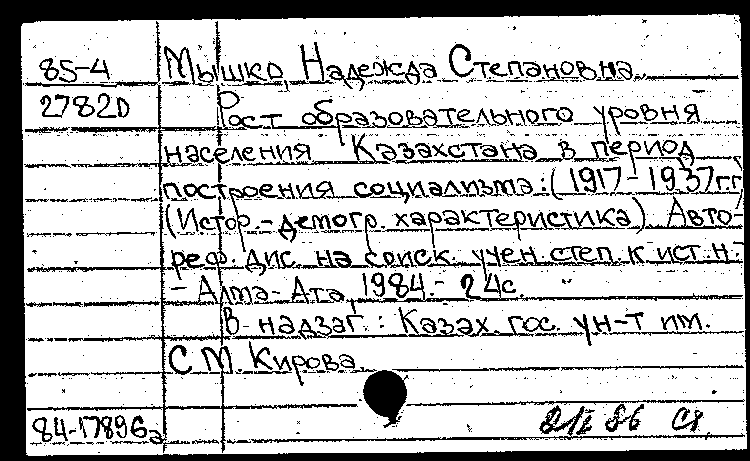 85-4 Мышко, Надежда Степановна.
27820 Рост образовательного уровня
населения Казахстана в период
построения социализма: (1917-1937гг)
(Истор.-демогр. характеристика). Авто-
реф. дис. на соиск. учен. степ. к. ист. н. -
- Алма-Ата, 1984. - 24с.
В надзаг.: Казах. гос. ун-т им.
С.М. Кирова.
84-17896а
86